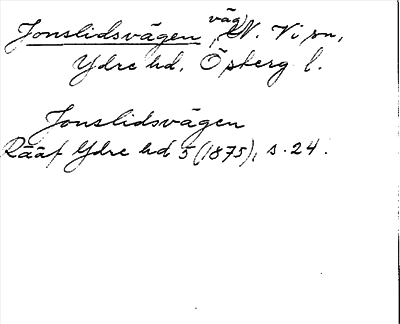 Jonslidsvägen, väg, N. Vi sn,
Ydre hd. Öpberg l.
Jonslidsvägen
Rääf Ydre hd 5 (1875), s. 24.